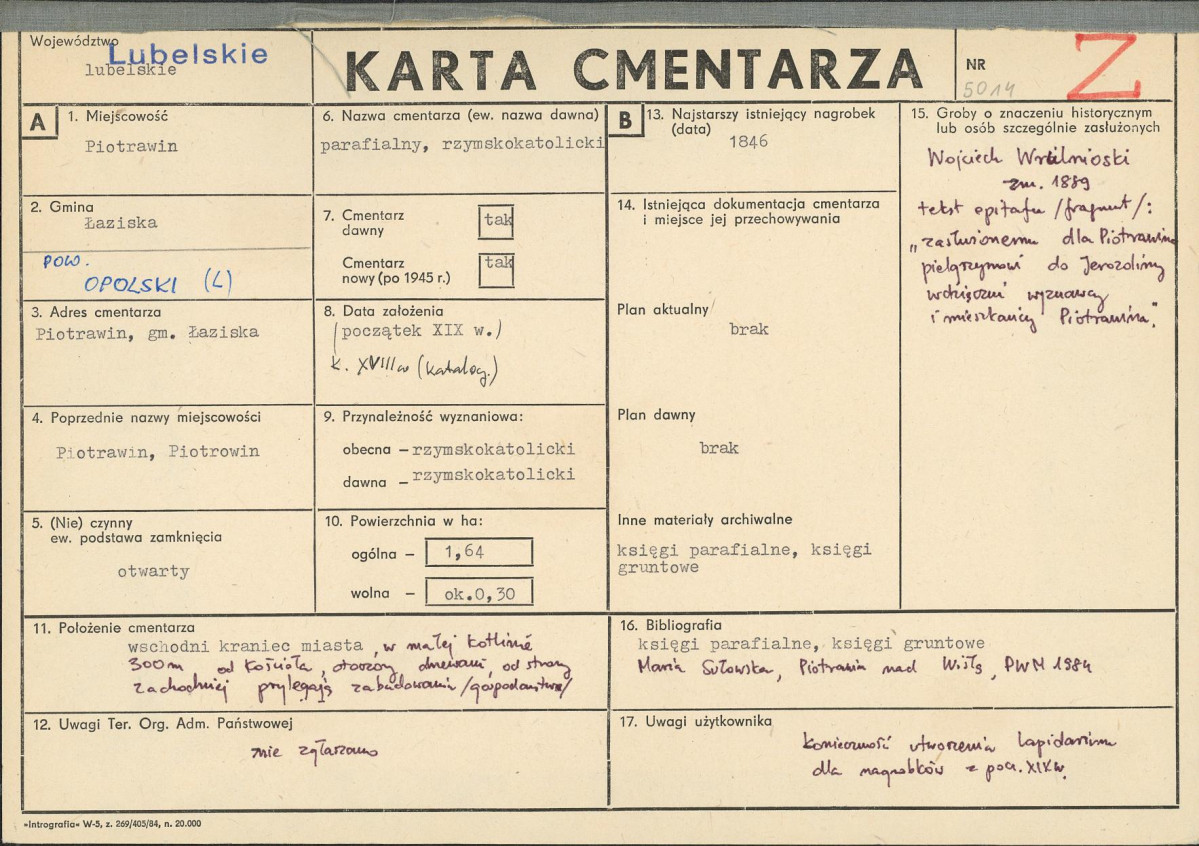 Województwo
Lubelskie
lubelskie
KARTA CMENTARZA
NR
5014
Z
A
1. Miejscowość
Piotrawin
2. Gmina
Łaziska
POW.
OPOLSKI (L)
3. Adres cmentarza
Piotrawin, gm. Łaziska
4. Poprzednie nazwy miejscowości
Piotrawin, Piotrowin
5. (Nie) czynny
ew. podstawa zamknięcia
otwarty
6. Nazwa cmentarza (ew. nazwa dawna)
parafialny, rzymskokatolicki
7. Cmentarz
dawny
tak
Cmentarz
nowy (po 1945 r.)
tak
8. Data założenia
(początek XIX w.)
k. XVIII w (katalog.)
9. Przynależność wyznaniowa:
obecna – rzymskokatolicki
dawna – rzymskokatolicki
10. Powierzchnia w ha:
ogólna – 1,64
wolna – ok.0,30
B
13. Najstarszy istniejący nagrobek
(data)
1846
14. Istniejąca dokumentacja cmentarza
i miejsce jej przechowywania
Plan aktualny
brak
Plan dawny
brak
Inne materiały archiwalne
księgi parafialne, księgi
gruntowe
15. Groby o znaczeniu historycznym
lub osób szczególnie zasłużonych
Wojciech
zm. 1889
tekst epitafu /fragment/:
„zasłużonemu dla Piotrawina
pielgrzymowi do Jerozolimy
wdzięczni wyznawcy
i mieszkańcy Piotrawina".
11. Położenie cmentarza
wschodni kraniec miasta, w małej kotlinie
300m od kościoła, otoczony drzewami, od strony
zachodniej przylegają zabudowania /gospodarstwa/
12. Uwagi Ter. Org. Adm. Państwowej
nie zgłaszano
16. Bibliografia
księgi parafialne, księgi gruntowe
Maria Sułowska, Piotrawin nad Wisłą, PWM 1984
17. Uwagi użytkownika
konieczność utworzenia lapidarium
dla nagrobków z pocz. XIXw.
»Intrografia« W-5, z. 269/405/84, n. 20.000